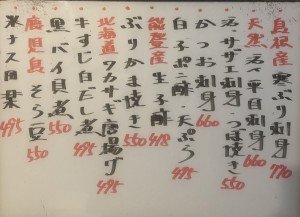 島根産 寒ぶり刺身 770
天然 ヒラメ平目刺身 660
活サザエ刺身・つぼ焼き 550
かつお刺身 660
白子ポン酢・天ぷら 495
能登産 生子酢 418
ぶりかま焼き 550
北海道 ワカサギ唐揚げ 495
牛すじ白だし煮 495
黒バイ貝煮 550
鹿児島 そら豆 550
米ナス田楽 495